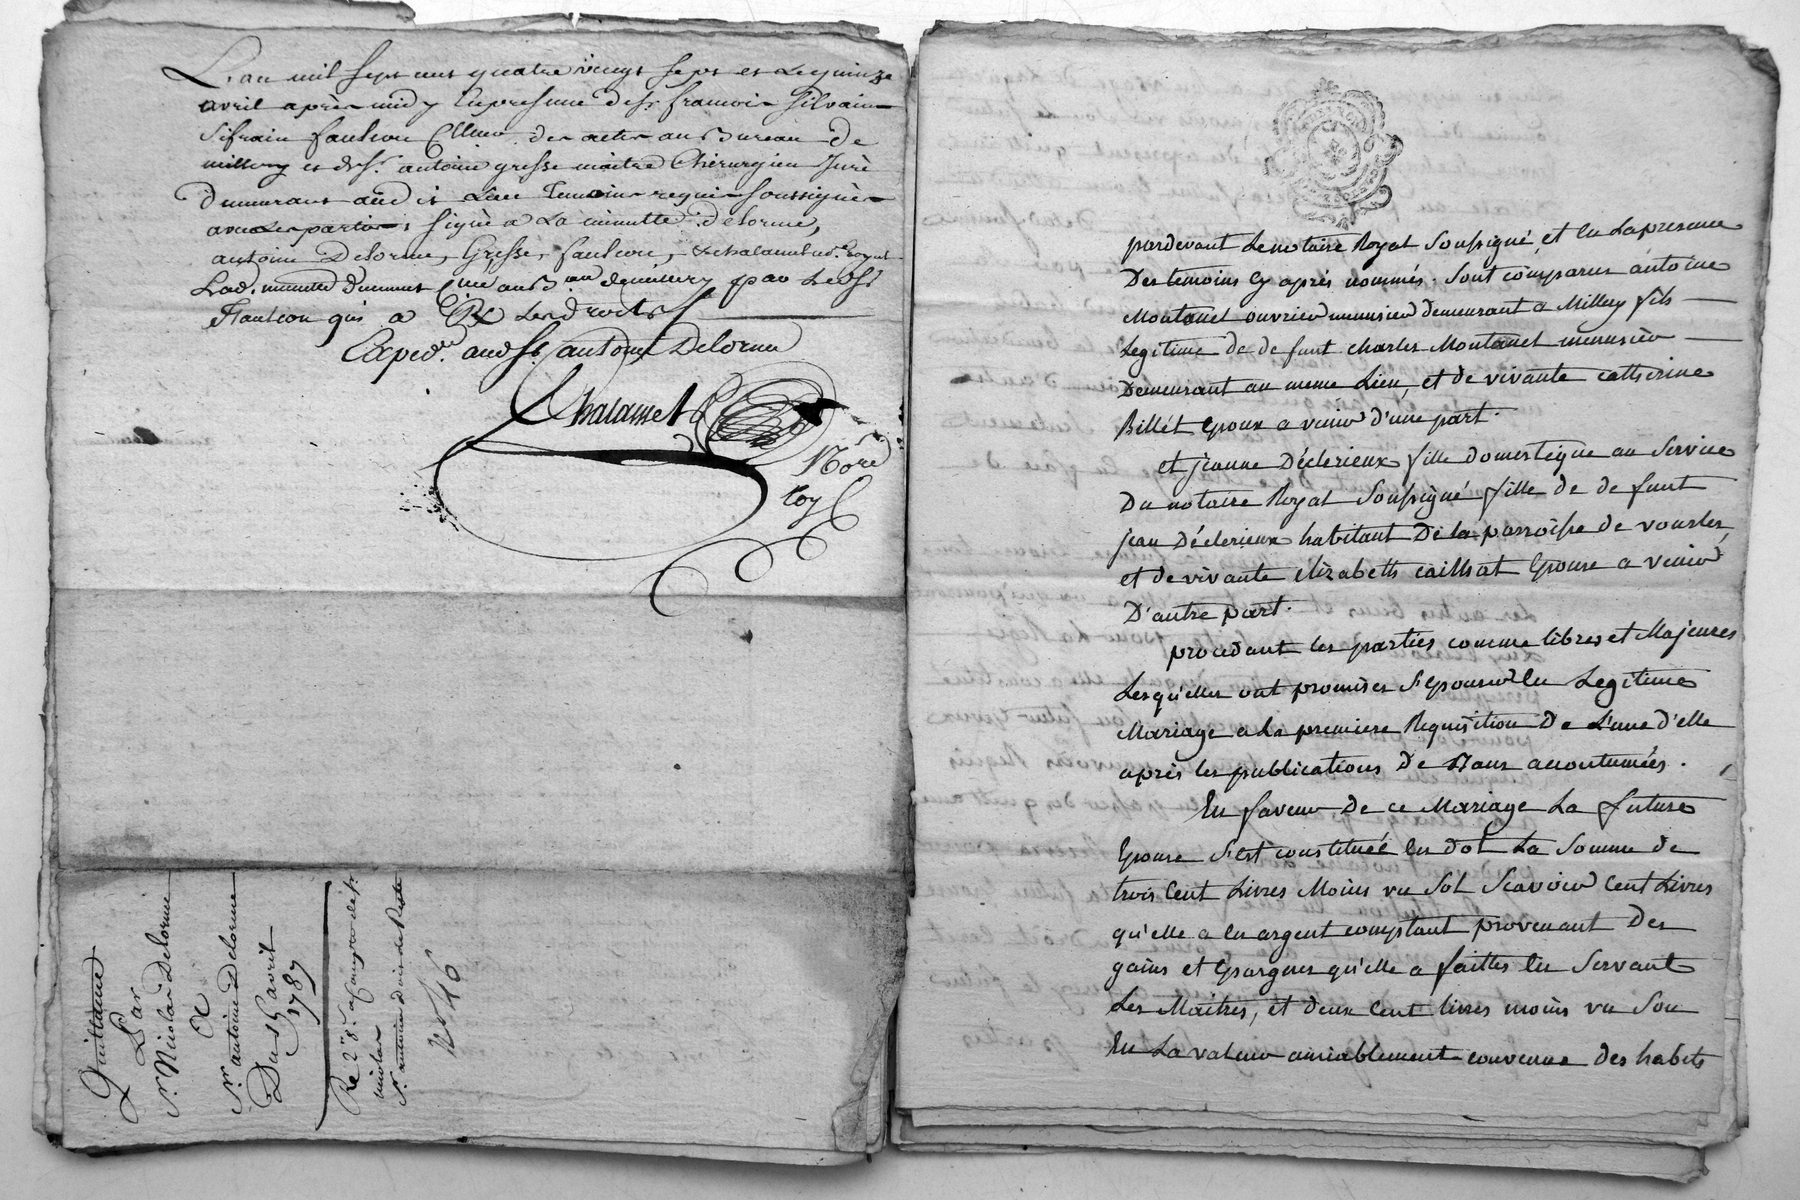 L'an mil sept cent quatre vingt sept et le quinze
avril après midy En presence de sr francoir Silvain
Sifrain faulcon des actes au Bureau de
millery et de sr. antoine gresse maitre Chirurgien Juré
Demeurant aud it Lieu Temoins requis soussignés
avec les parties signé a La minutte Delorme,
antoine Delorme, Gresse, faulcon, & chalamel no.re Royal
Lad. minutte au B.au de millery par Led sr
Faulcon qui a les droits
Exped.ée aud sr. antoine Delorme
Chalamel
No.re
Roy
Quittance
Par
Sr. Nicolas Delorme
A
Sr. antoine Delorme
Du 15 avril
1787
nicolas
Sr. antoine
No 46
pardevant Le notaire Royal Soussigné, et En La presence
Des temoins cy après nommés. Sont comparus antoine
Montanet ouvrier menusier demeurant a Millery fils
Legitime de de funt charles Montanet menusier
Demeurant au meme Lieu, et de vivante catherine
Billet Epoux a venir d'une part.
et jeanne Déclerieux fille domestique au Service
Du notaire Royal Soussigné fille de de funt
jean Déclerieux habitant De la parroisse de vourles,
et de vivante elizabeth caillat Epouse a venir
D'autre part.
procedant les parties comme libres et Majeures
Lesquelles ont promises S'epouser En Legitime
Mariage a La premiere Requisition De L'une d'elle
après les publications De Bans accoutumées.
En faveur De ce Mariage La future
Epouse S'est constituée En dot La Somme de
trois Cent Livres Moins un Sol Scavoir Cent Livres
qu'elle a En argent comptant provenant Des
gains et Epargnes qu'elle a faittes En Servant
Les Maitres, et deux Cent livres moins un Sou
En La valeur amiablement convenue des habits